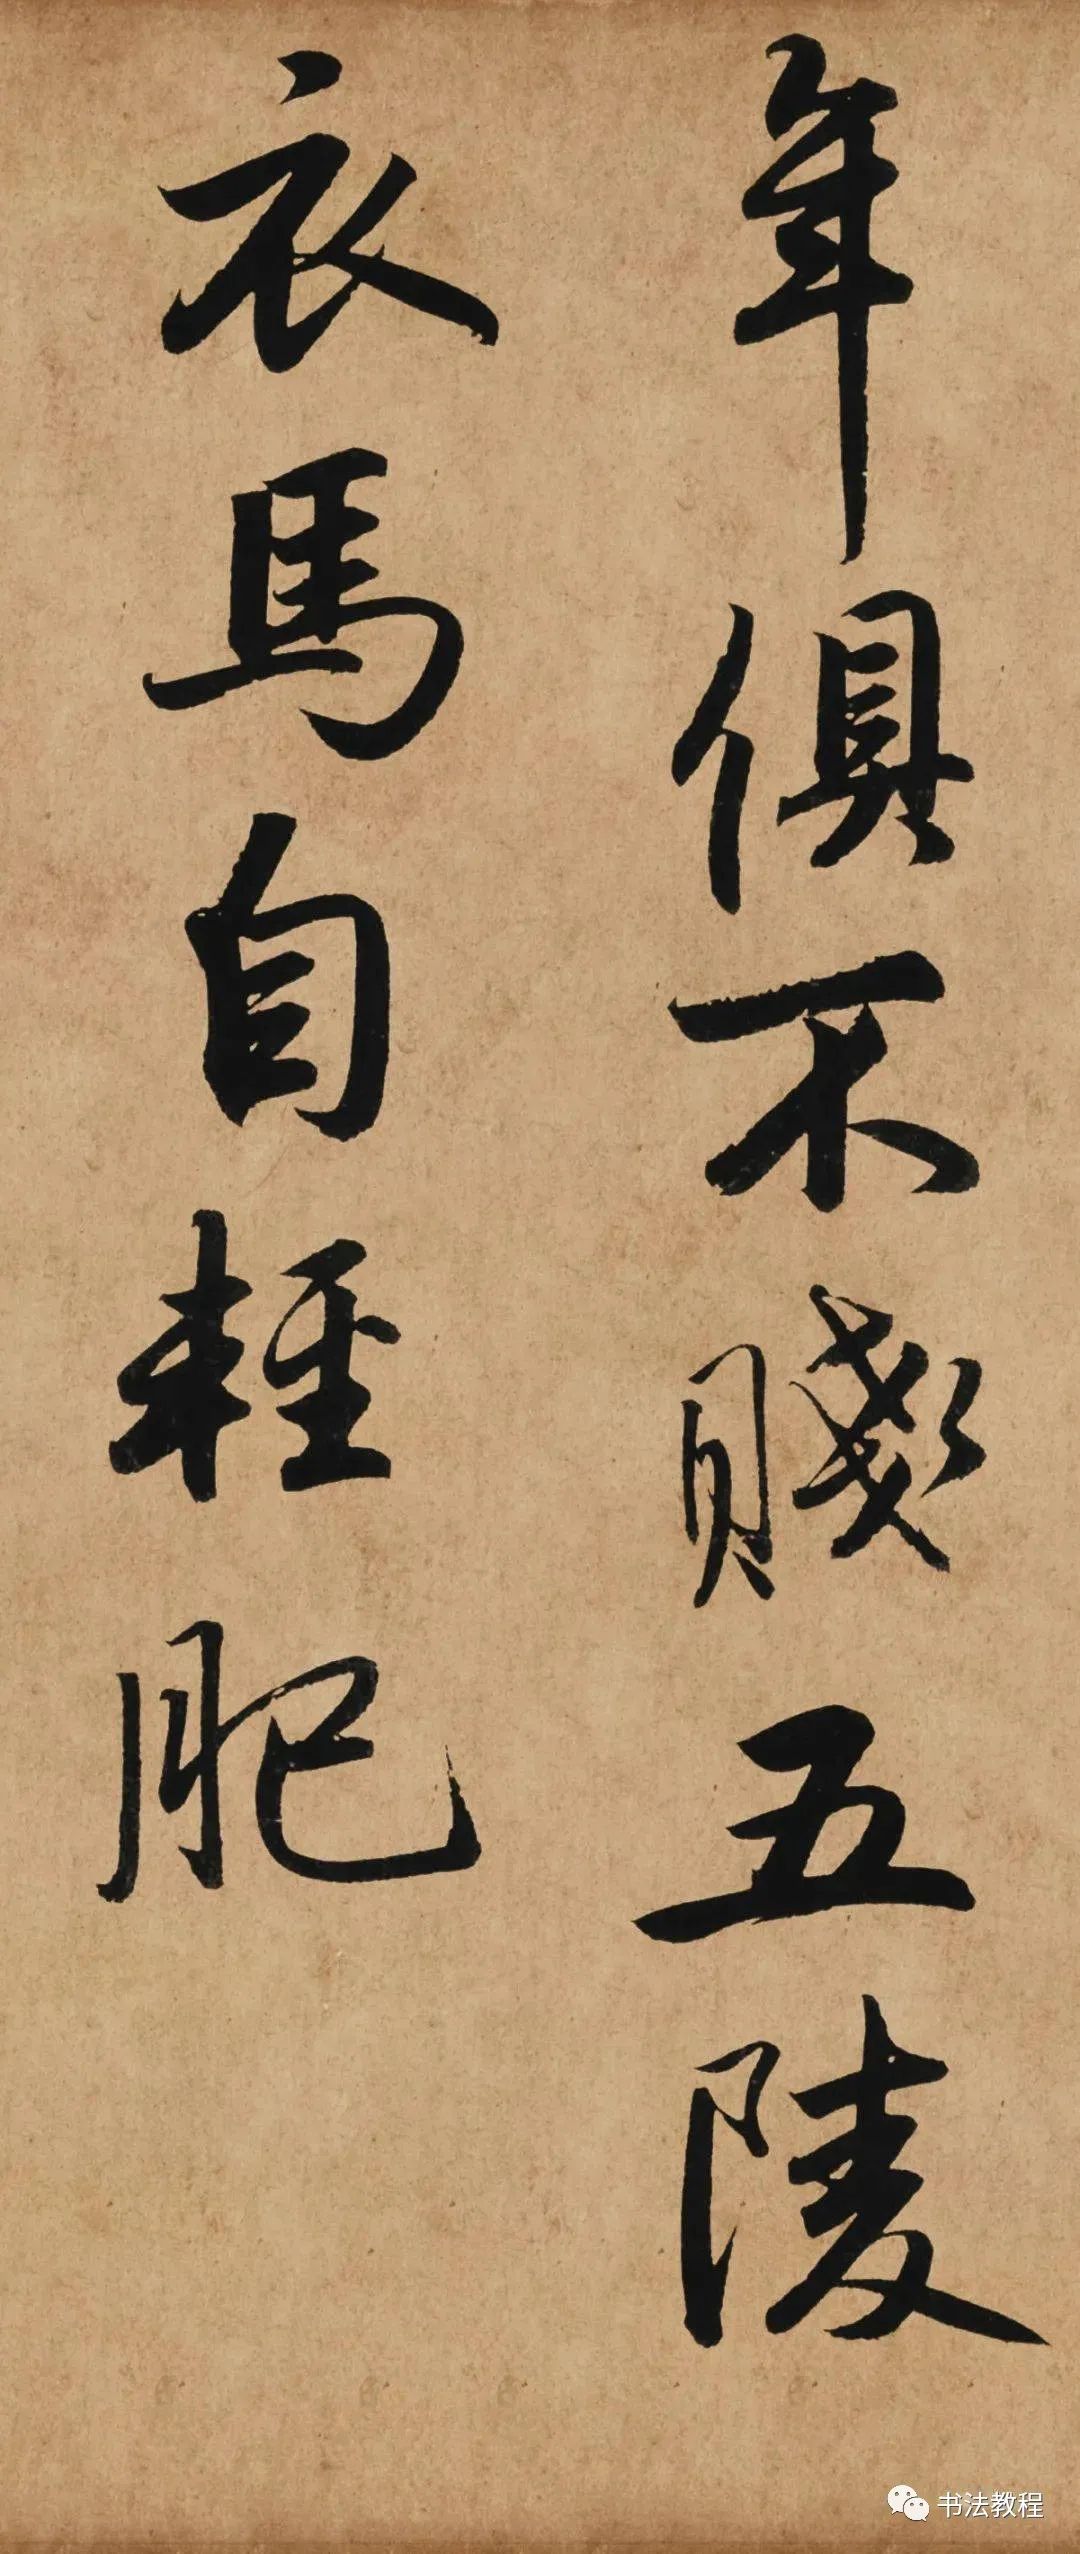 年俱不賤五陵
衣馬自輕肥
书法教程